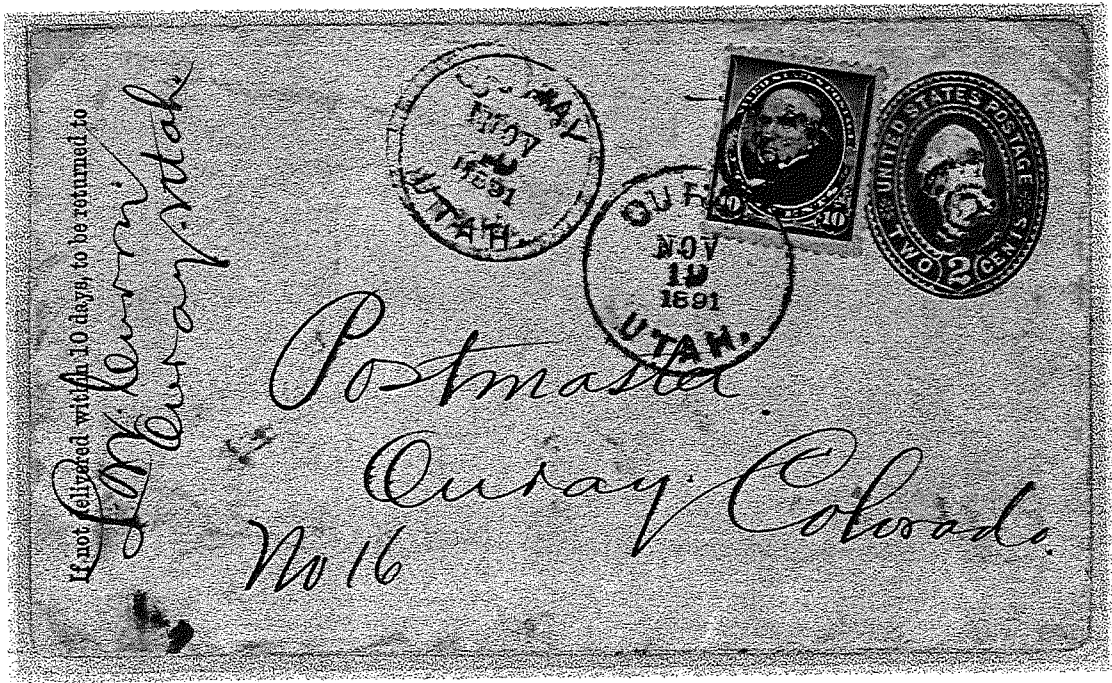 If not delivered within 10 days, to be returned to
Ouray. Utah
RAY
NOV
1891
UTAH.
OUR
NOV
19
1891
UTAH.
10 10
UNITED STATES POSTAGE
TWO 2 CENTS
Postmaster.
Ouray. Colorado.
No 16